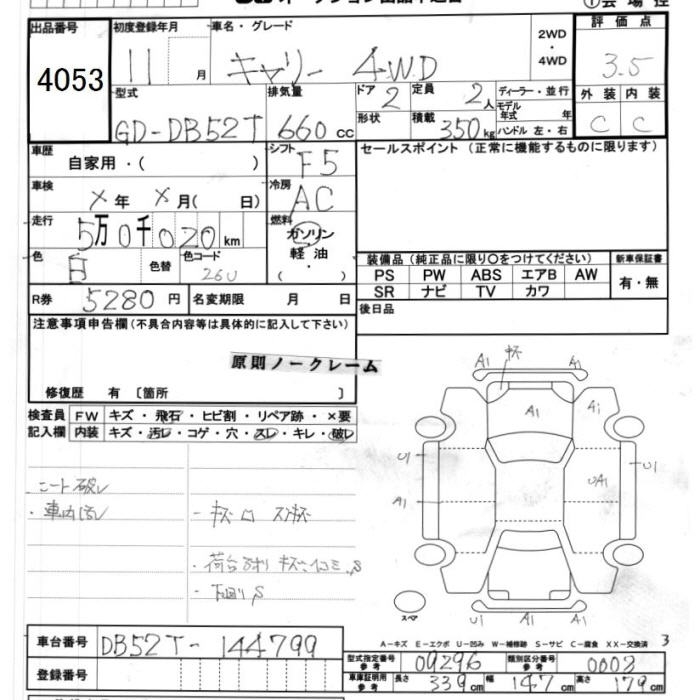 ① 会 場 控
出品番号 初度登録年月 車名・グレード 評 価 点
4053 11 月 キャリー 4WD 2WD・4WD 3.5
型式 排気量 ドア 定員 ディーラー・並行 外 装 内 装
GD-DB52T 660 cc 2 2人 モデル年式 年 C C
形状 積載 350kg ハンドル 左・右
車歴 自家用・( ) シフト F5 セールスポイント (正常に機能するものに限ります)
車検 × 年 × 月( 日) 冷房 AC
走行 5万0千020km 燃料 ガソリン
色 白 色替 色コード 26U 軽 油 ・( )
装備品 (純正品に限り○をつけてください) 新車保証書
PS PW ABS エアB AW 有・無
SR ナビ TV カワ
R券 5280 円 名変期限 月 日 後日品
注意事項申告欄(不具合内容等は具体的に記入して下さい)
原則ノークレーム
修復歴 有 〔箇所 〕
検査員 FW キズ・飛石・ヒビ割・リペア跡・×要
記入欄 内装 キズ・汚レ・コゲ・穴・スレ・キレ・破レ
A1 A1
A1 A1
U1 U1
A1 UA1
シート破レ
・車内汚レ
・下回りS
スペア U1 A1 A1
A-キズ E-エクボ U-凹み W-補修跡 S-サビ C-腐食 XX-交換済 3
車台番号 DB52T-144799
型式指定番号 参考 09296 類別区分番号 参考 0002
登録番号 車庫証明用 参考 長さ 339cm 幅 147cm 高さ 179cm